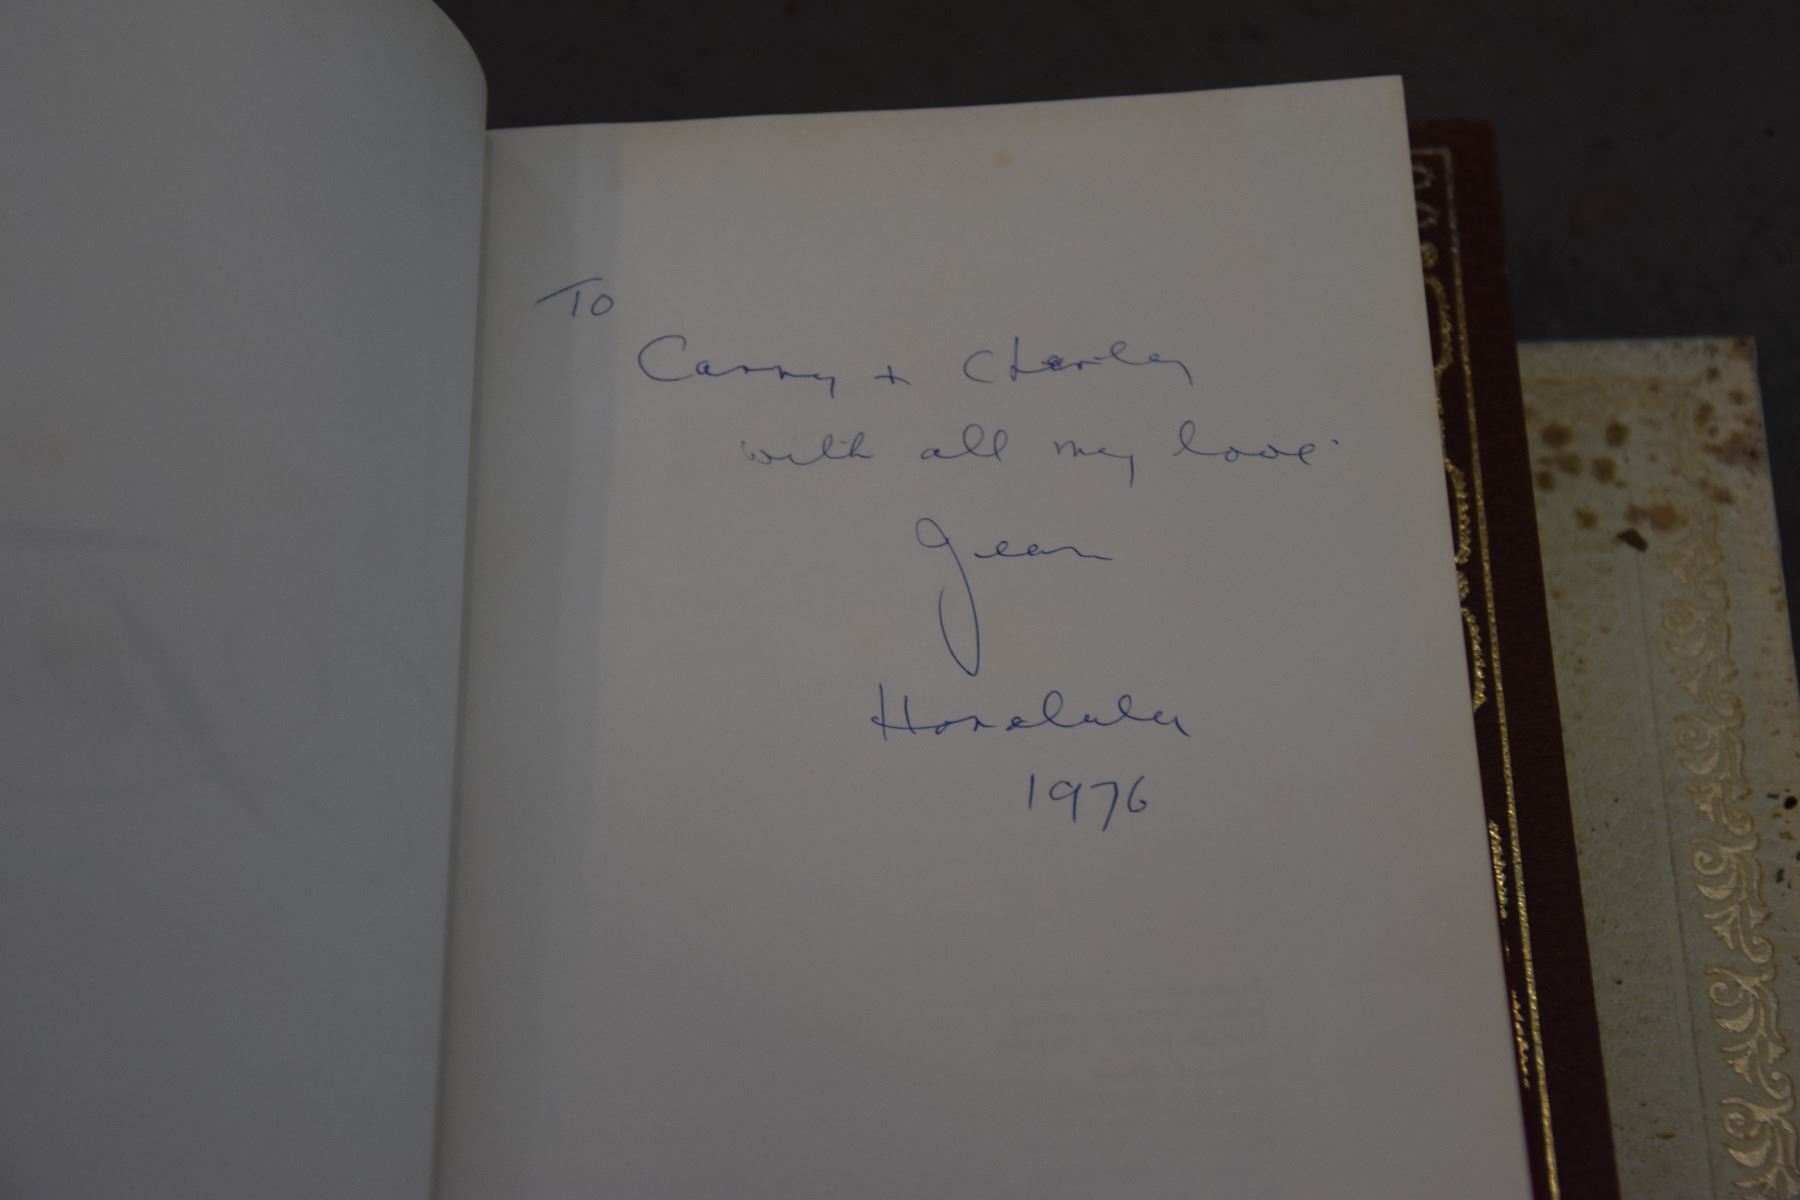 To
Canny + Charley
with all my love.
Jean
Honolulu
1976